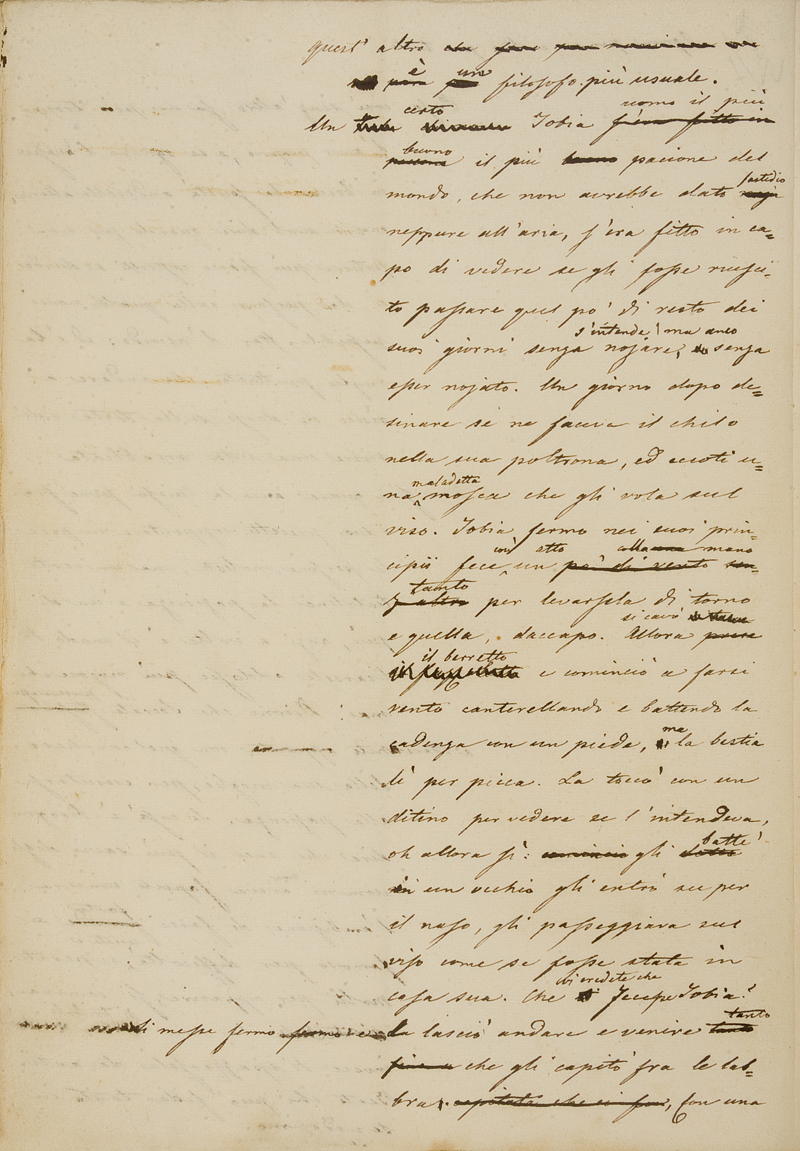 quest' altro
è un filosofo più usuale.
certo uomo il più
Un Tobia s'era fitto in
buono
il più buono pacione del
fastidio
mondo, che non avrebbe dato noja
neppure all'aria, s'era fitto in ca=
po di vedere se gli fosse riusci=
to passare quel po' di resto dei
s'intende! ma anco
suoi giorni senza nojare, senza
esser nojato. Un giorno dopo de=
sinare se ne faceva il chilo
nella sua poltrona, ed eccoti u=
maladetta
na mosca che gli vola sul
viso. Tobia fermo nei suoi prin=
così atto colla mano
cipii fece un po' di vento sen=
tanto
z'altro per levarsela di torno
si cavò
e quella, daccapo. Allora prese
il berretto
e cominciò a farsi
vento canterellando e battendo la
ma
cadenza con un piede, la bestia
lì per picca. La toccò con un
ditino per vedere se l'intendeva,
battè
oh allora sì: cominciò gli
in un occhio gli entrò su per
il naso, gli passeggiava sul
viso come se fosse stata in
vi credete che
casa sua. Che facesse Tobia?
tanto
si messe fermo fermo e la lasciò andare e venire tanto
fino a che gli capitò fra le lab=
bra. capitata che ci fu, con una